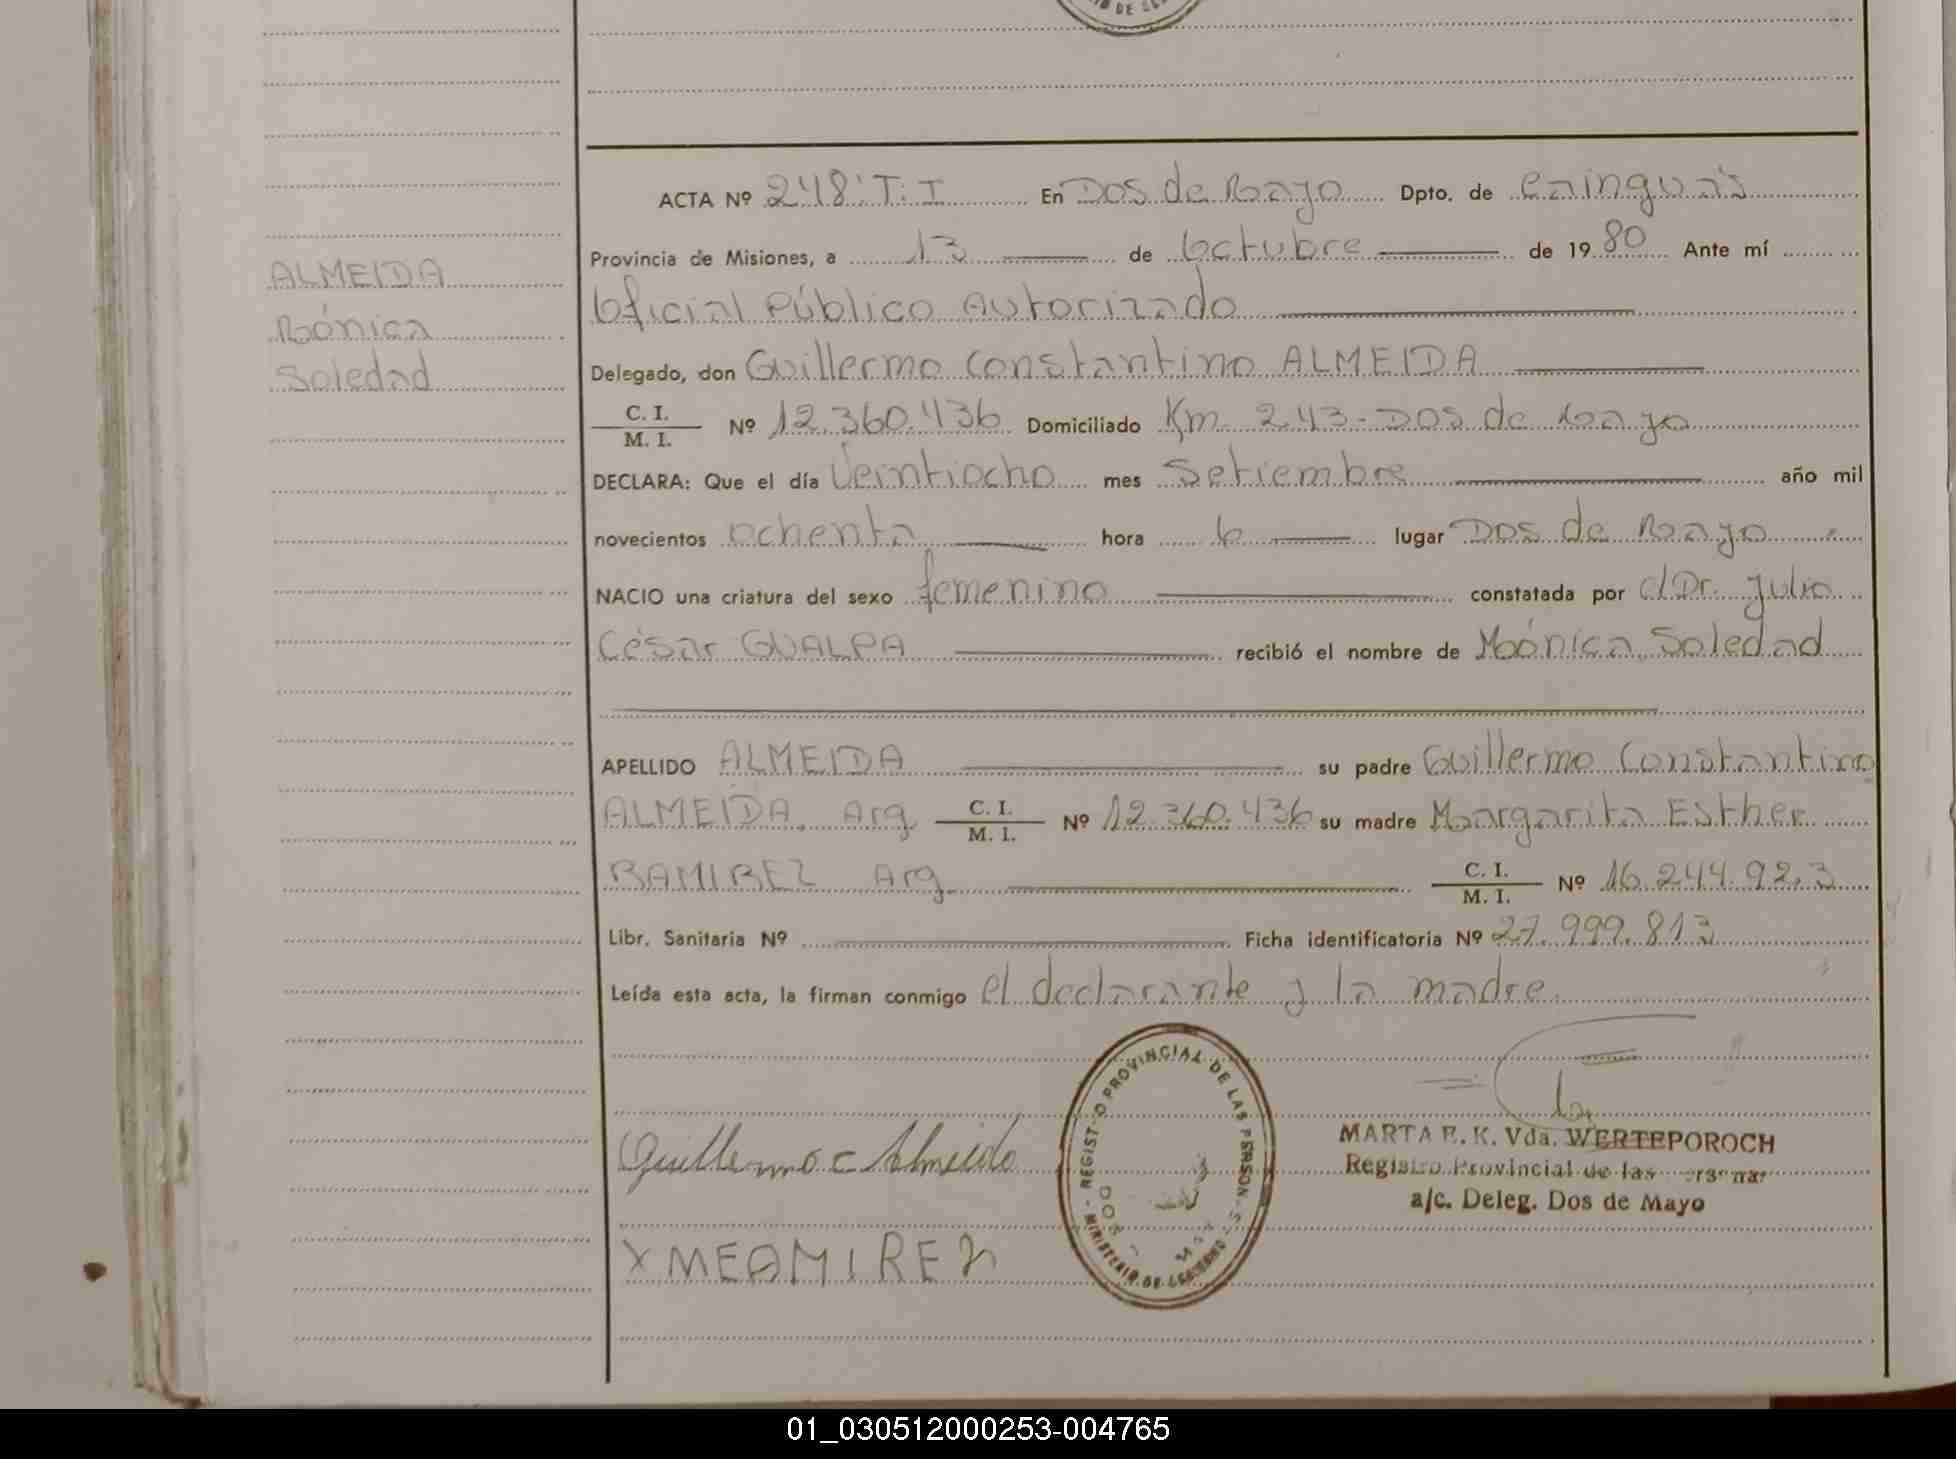 ACTA Nº 248 T: I En Dos de Mayo Dpto. de Cainguás
Provincia de Misiones, a 13 de Octubre de 1980 Ante mí
Oficial Público Autorizado
Delegado, don Guillermo Constantino ALMEIDA
C. I. / M. I. Nº 12.360.436 Domiciliado Km. 243-Dos de Mayo
DECLARA: Que el día Veintiocho mes Setiembre año mil
novecientos ochenta hora 6 lugar Dos de Mayo
NACIO una criatura del sexo femenino constatada por el Dr. Julio
César GUALPA recibió el nombre de Mónica Soledad
APELLIDO ALMEIDA su padre Guillermo Constantino
ALMEIDA, Arg C. I. / M. I. Nº 12.360.436 su madre Margarita Esther
RAMIREZ Arg. C. I. / M. I. Nº 16.244.923
Libr. Sanitaria Nº Ficha identificatoria Nº 27.999.813
Leída esta acta, la firman conmigo el declarante y la madre.
ALMEIDA
Mónica
Soledad
Guillermo C Almeida
X MERAMIREZ
REGISTRO PROVINCIAL DE LAS PERSONAS
MINISTERIO DE GOBIERNO
MARTA E. K. Vda. WERTEPOROCH
Registro Provincial de las Personas
a/c. Deleg. Dos de Mayo
01_030512000253-004765